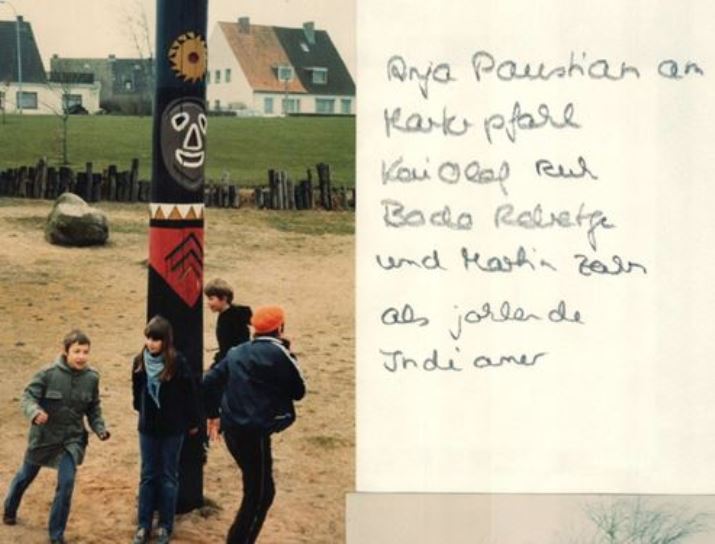 Anja Paustian am
Marterpfahl
Kai Olaf
Bodo
und Martin
als johlende
Indianer